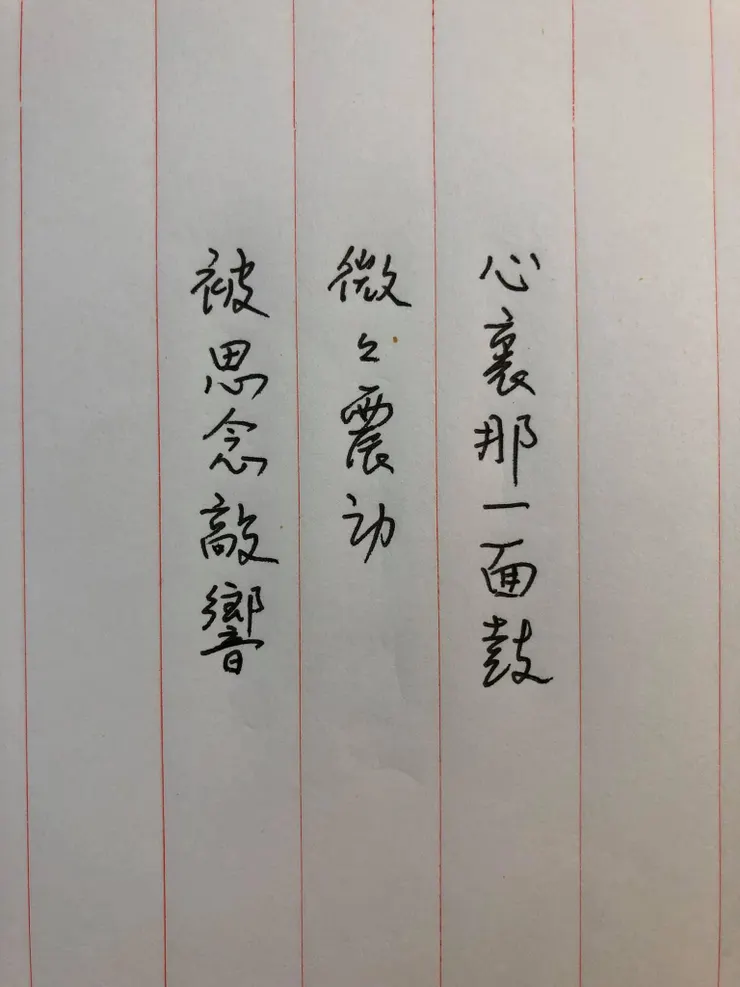 心裏那一面鼓
微々震动
被思念敲響